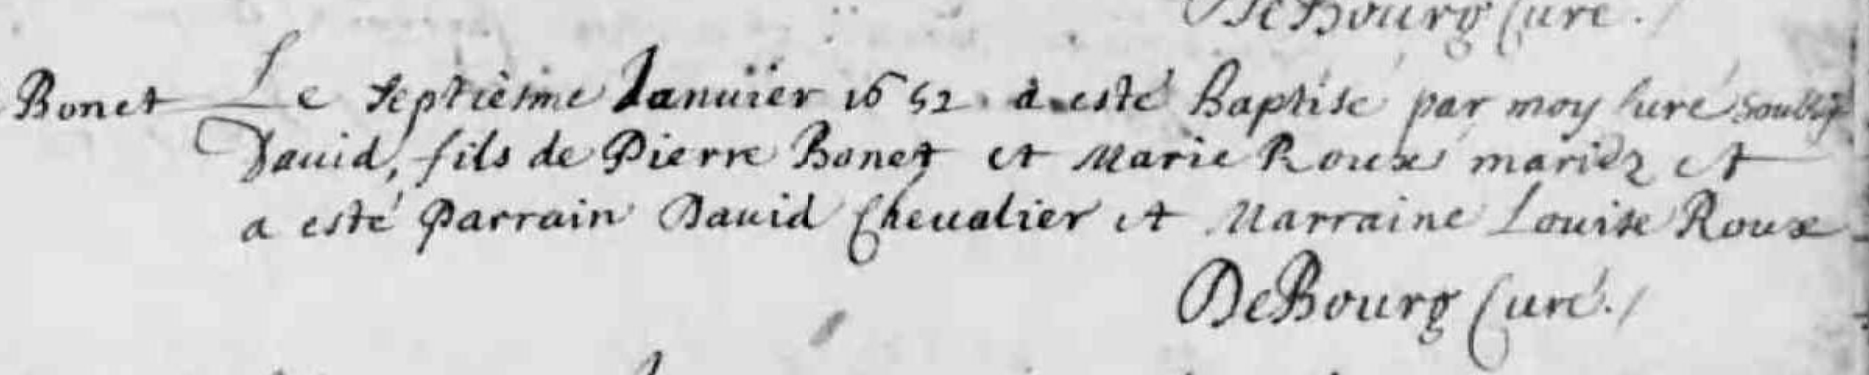 DeBourg Curé./
Bonet Le septiesme Ianuiër 1652 a esté Baptisé par moy Curé soubsg
Dauid, fils de Pierre Bonet et Marie Roux mariéz et
a esté Parrain Dauid Cheualier et Marraine Louise Roux
DeBourg Curé./